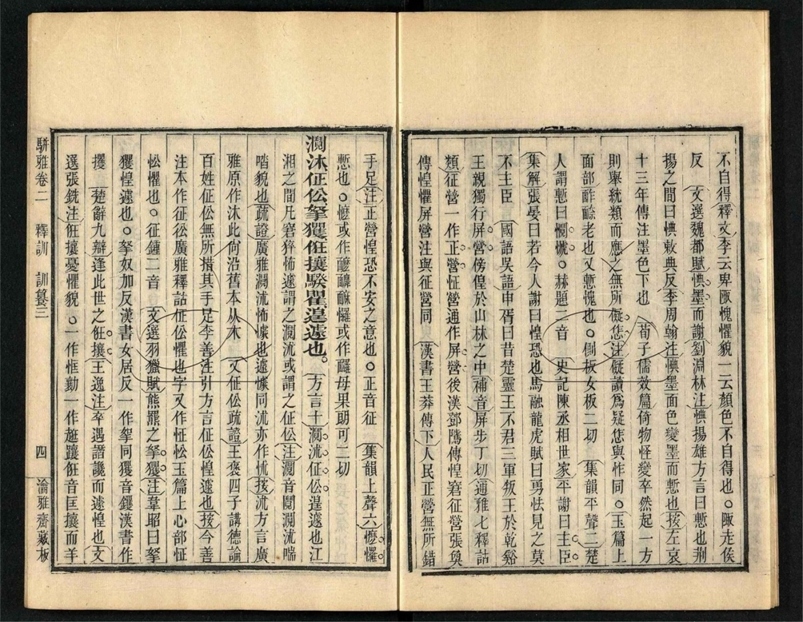 不自得釋文李云卑陬愧懼貌一云顏色不自得也○陬走侯
反　文選魏都賦㥏墨而謝劉淵林注㥏揚雄方言曰慙也荆
揚之間曰㥏敕典反李周翰注㥏墨面色變墨而慙也按左哀
十三年傳注墨色下也　荀子儒效篇倚物怪變卒然起一方
則舉統類而應之無所儗㤰注儗讀爲疑㤰與怍同○玉篇上
面部酢𩈇老也又慙愧也○側板女板二切　集韻平聲二楚
人謂慙曰　○赫題二音　史記陳丞相世家平謝曰主臣
集解張晏曰若今人謝曰惶恐也馬融龍虎賦曰勇怯見之莫
不主臣　國語吳語申胥曰昔楚靈王不君三軍叛王於乾谿
王親獨行屏營傍偟於山林之中補音屏步丁切通雅七釋詁
類征營一作正營怔營通作屏營後漢鄧騭傳惶窘征營張奐
傳惶懼屏營注與征營同　漢書王莽傳下人民正營無所錯
手足注正營惶恐不安之意也○正音征　集韻上聲六懡㦬
慙也○懡或作　　㦬或作　母果朗可二切
澗沭征伀挐玃俇攘䠂瞿遑遽也　方言十澗沭征伀遑遽也江
湘之間凡窘猝怖遽謂之澗沭或謂之征伀注澗音閴澗沭喘
喈貌也疏證廣雅澗沭怖懅也遽懅同沭亦作怵按沭方言廣
雅原作沐此向沿舊本从木　又征伀疏證王褒四子講德論
百姓征伀無所措其手足李善注引方言征伀惶遽也按今善
注本作怔忪廣雅釋詁怔伀懼也字又作怔忪玉篇上心部怔
忪懼也○征鍾二音　文選羽獵賦熊羆之挐玃注韋昭曰挐
玃惶遽也○挐奴加反漢書女居反一作拏同玃音钁漢書作
攫　楚辭九辯逢此世之俇攘王逸注卒遇譖讒而遽惶也文
選張銑注俇攘憂懼貌○一作恇動一作　躟俇音匡攘而羊
駢雅卷二　釋訓　訓纂三　四　渝雅齋藏板